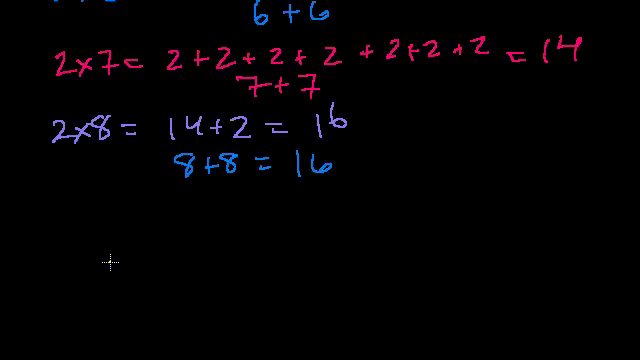 6 + 6
2x7 = 2 + 2 + 2 + 2 + 2 + 2 + 2 = 14
7 + 7
2x8 = 14 + 2 = 16
8 + 8 = 16